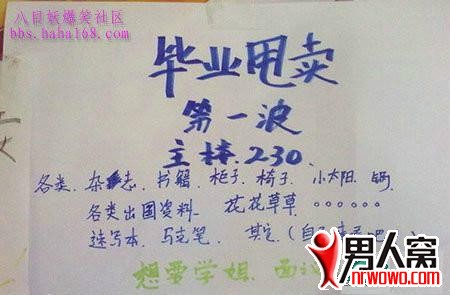 八目妖爆笑社区
bbs.haha168.com
毕业甩卖
第一波
主楼.230.
各类.杂志.书籍.柜子.椅子.小太阳.锅
各类出国资料 花花草草……
速写本.马克笔. 其它(自己来看吧
想要学姐.面议
男人窝
nrwowo.com